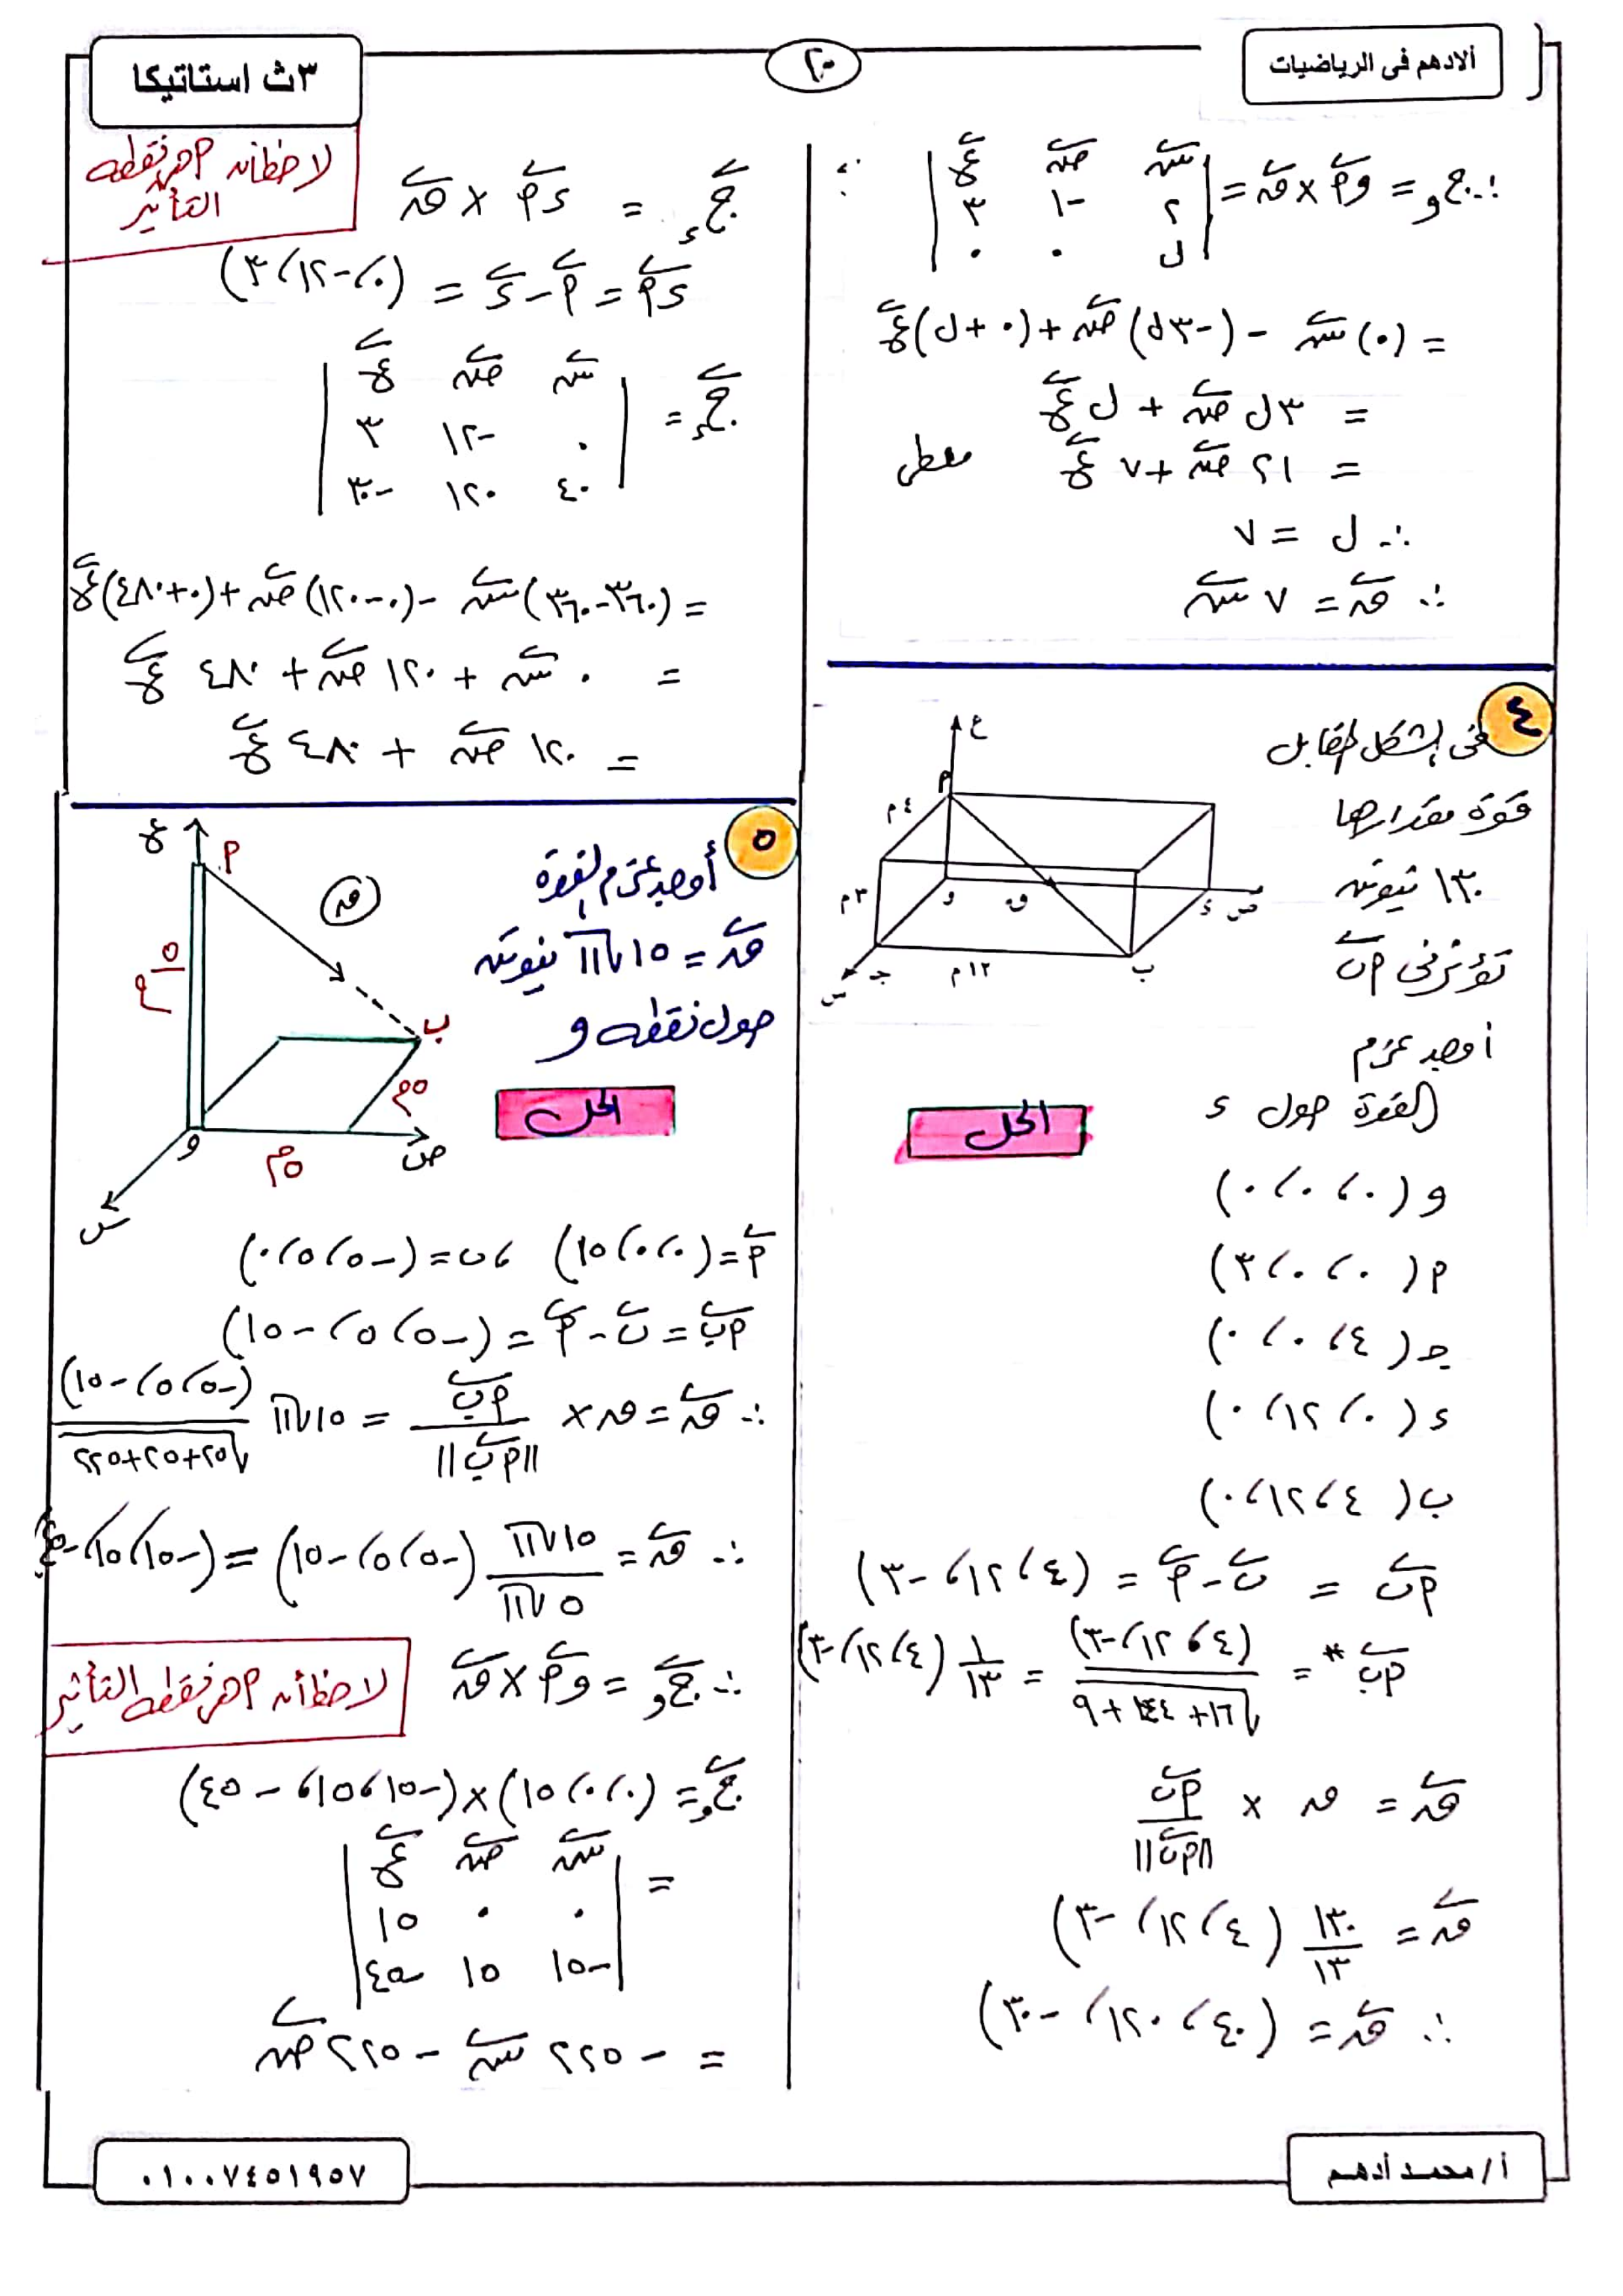 ألادهم فى الرياضيات
٢٠
٣ث استاتيكا
∴ ج و = و أ × ق = | س ص ع |
| ٢ -١ ٣ |
| ل ٠ ٠ |
= (٠) س - (-٣ل) ص + (٠ + ل) ع
= ٣ل ص + ل ع
= ٢١ ص + ٧ ع معطى
∴ ل = ٧
∴ ق = ٧ س
٤
فى الشكل المقابل
قوة مقدارها
١٣٠ نيوتن
تؤثر فى أ ب
أوجد عزم
القوة حول ء
ع
أ
٤ م
٣ م
و
ق
ء
ص
س
جـ
١٢ م
ب
الحل
و (٠ ، ٠ ، ٠)
أ (٠ ، ٠ ، ٣)
جـ (٤ ، ٠ ، ٠)
ء (٠ ، ١٢ ، ٠)
ب (٤ ، ١٢ ، ٠)
أ ب = ب - أ = (٤ ، ١٢ ، -٣)
أ ب* = (٤ ، ١٢ ، -٣) / √(١٦ + ١٤٤ + ٩) = ١/١٣ (٤ ، ١٢ ، -٣)
ق = ق × أ ب / ||أ ب||
ق = ١٣٠/١٣ (٤ ، ١٢ ، -٣)
∴ ق = (٤٠ ، ١٢٠ ، -٣٠)
لاحظ أن أ هى نقطة
التأثير
ج ء = ء أ × ق
ء أ = أ - ء = (٠ ، -١٢ ، ٣)
ج ء = | س ص ع |
| ٠ -١٢ ٣ |
| ٤٠ ١٢٠ -٣٠ |
= (٣٦٠ - ٣٦٠) س - (٠ - ١٢٠) ص + (٠ + ٤٨٠) ع
= ٠ س + ١٢٠ ص + ٤٨٠ ع
= ١٢٠ ص + ٤٨٠ ع
٥
أوجد عزم القوة
ق = ١٥√١١ نيوتن
حول نقطة و
ع
أ
ق
١٥ م
ب
٥ م
و
٥ م
ص
س
الحل
أ = (٠ ، ٠ ، ١٥) ، ب = (-٥ ، ٥ ، ٠)
أ ب = ب - أ = (-٥ ، ٥ ، -١٥)
∴ ق = ق × أ ب / ||أ ب|| = ١٥√١١ (-٥ ، ٥ ، -١٥) / √(٢٥ + ٢٥ + ٢٢٥)
∴ ق = ١٥√١١ / ٥√١١ (-٥ ، ٥ ، -١٥) = (-١٥ ، ١٥ ، -٤٥)
∴ ج و = و أ × ق
لاحظ أن أ هى نقطة التأثير
ج و = (٠ ، ٠ ، ١٥) × (-١٥ ، ١٥ ، -٤٥)
= | س ص ع |
| ٠ ٠ ١٥ |
| -١٥ ١٥ -٤٥ |
= -٢٢٥ س - ٢٢٥ ص
أ / محمد أدهم
٠١٠٠٧٤٥١٩٥٧